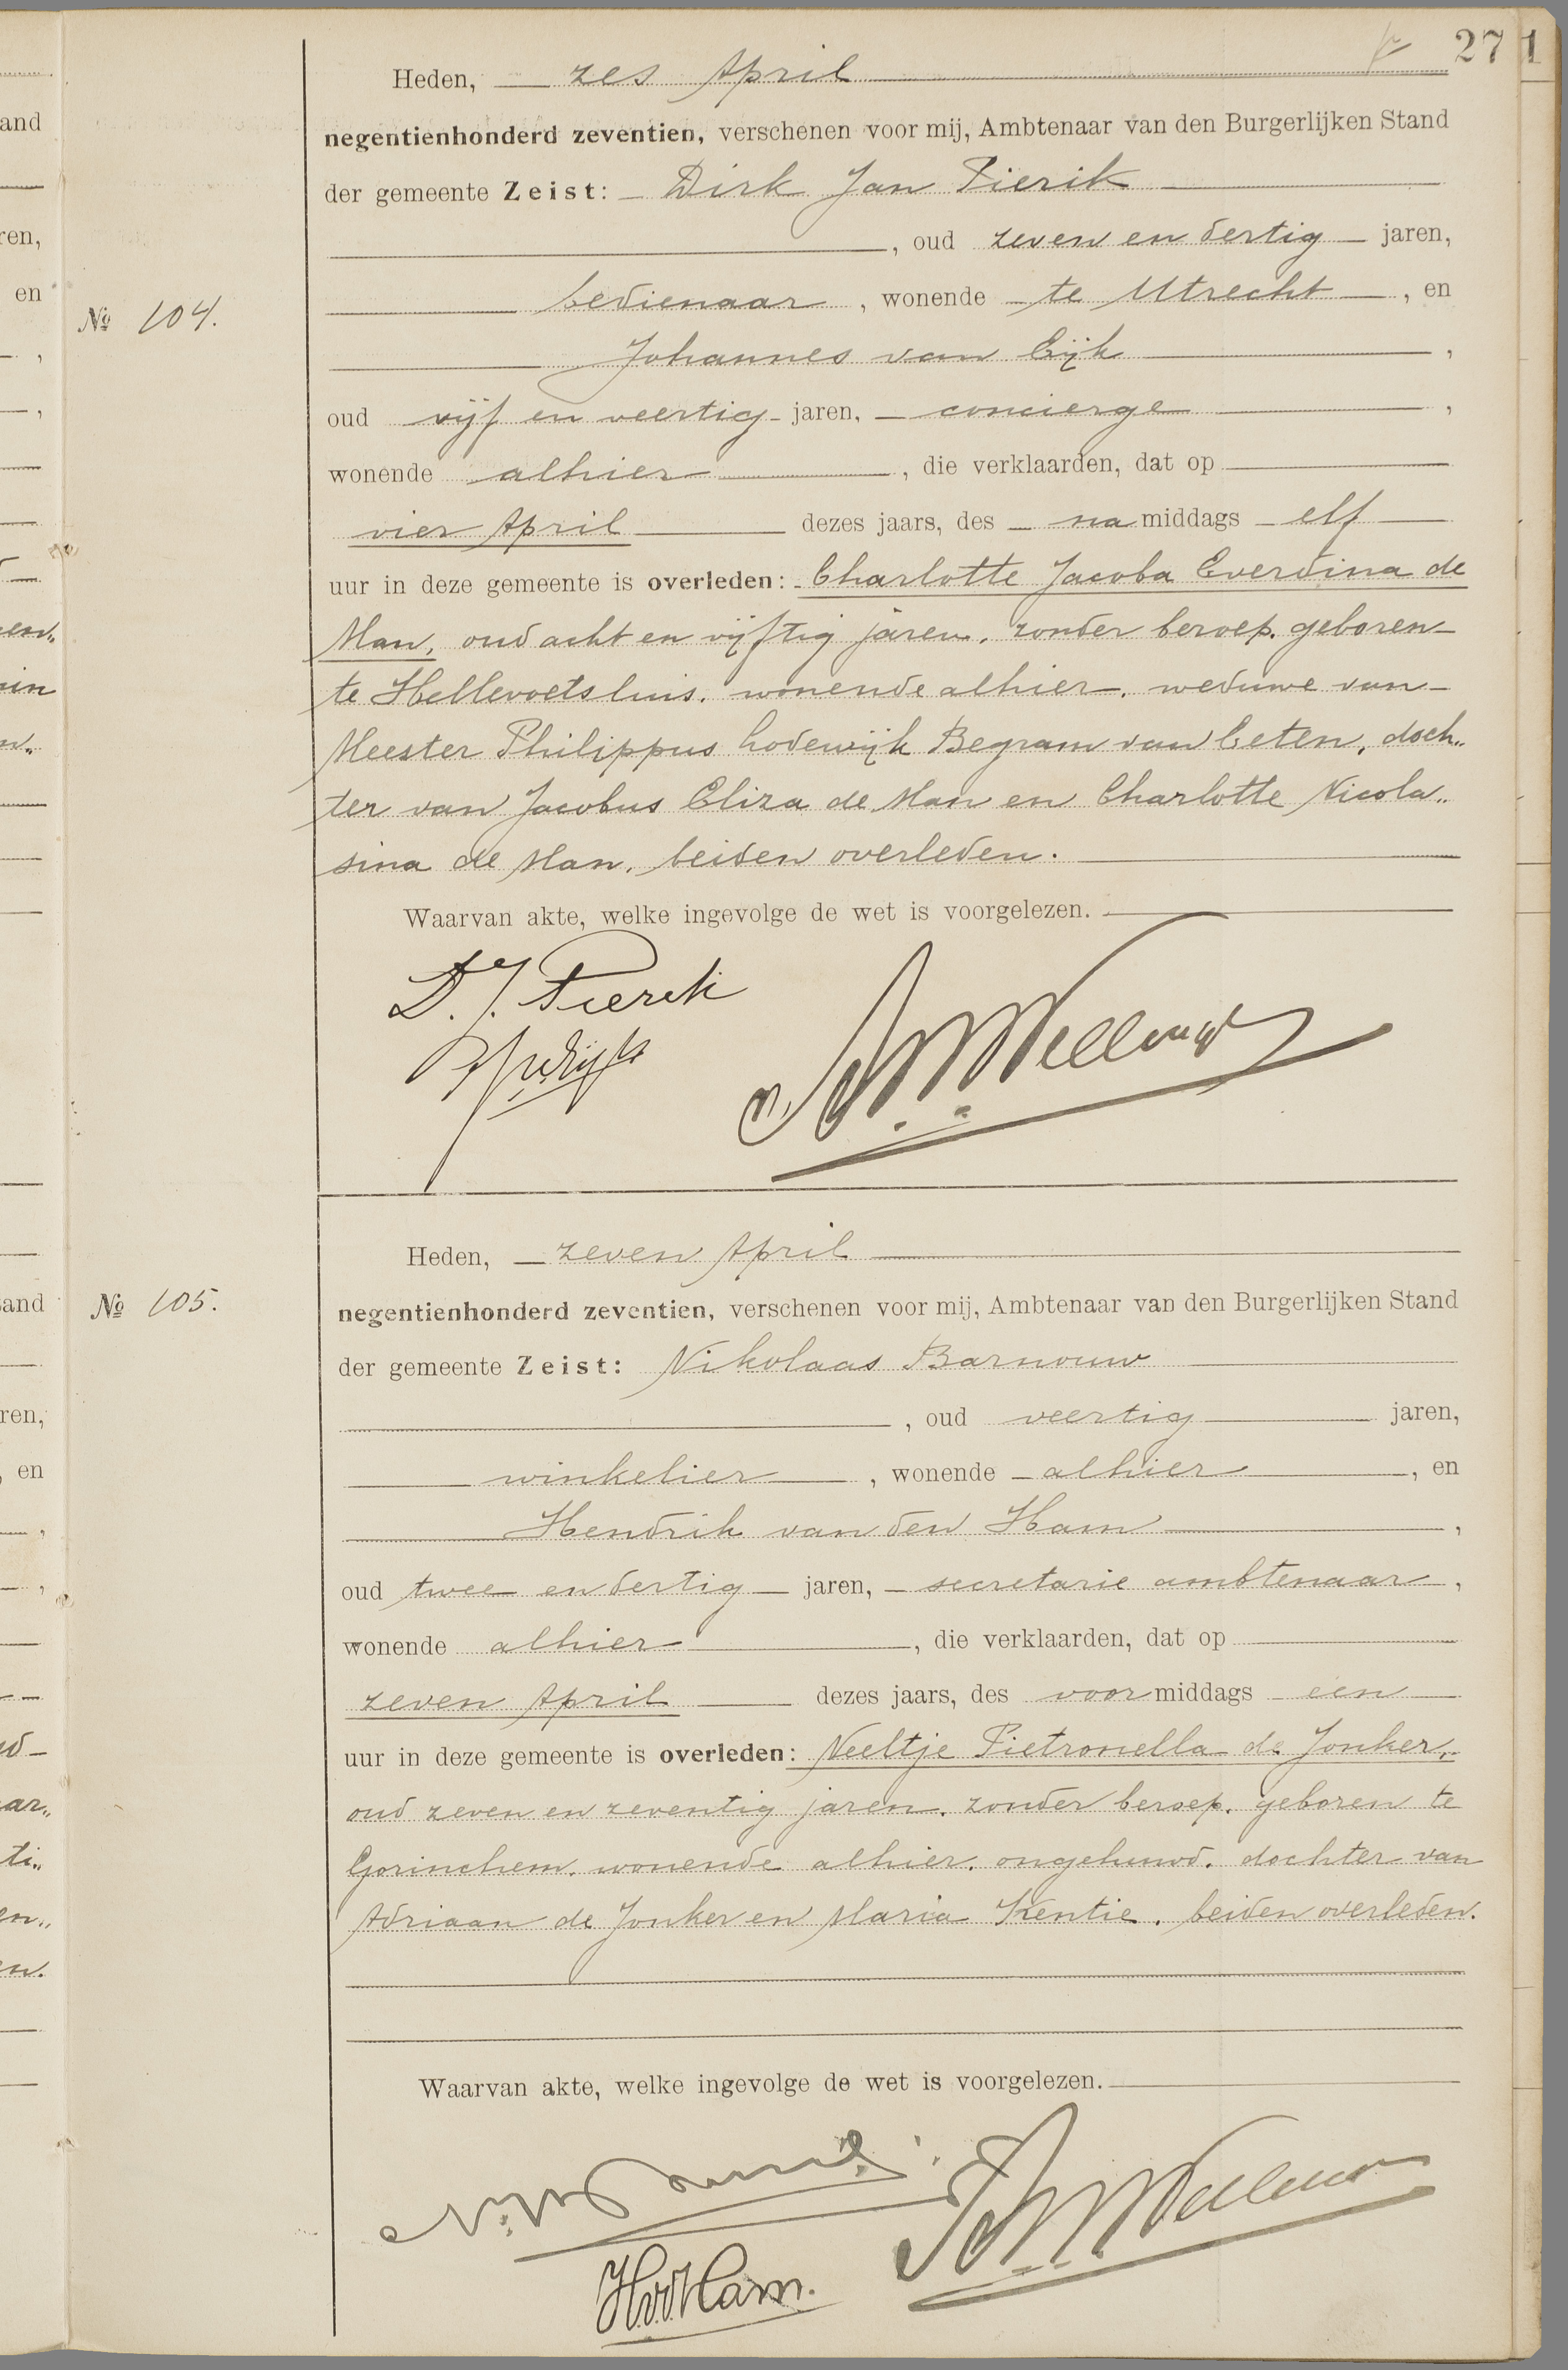 27 1
Heden, zes April
negentienhonderd zeventien, verschenen voor mij, Ambtenaar van den Burgerlijken Stand
der gemeente Zeist: Dirk Jan Pierik
, oud zeven en dertig jaren,
bedienaar, wonende te Utrecht, en
№ 104.
Johannes van Eijk,
oud vijf en veertig jaren, concierge,
wonende alhier, die verklaarden, dat op
vier April dezes jaars, des na middags elf
uur in deze gemeente is overleden: Charlotte Jacoba Everdina de
Man, oud acht en vijftig jaren, zonder beroep, geboren
te Hellevoetsluis, wonende alhier, weduwe van
Meester Philippus Lodewijk Begram van Eeten, doch„
ter van Jacobus Eliza de Man en Charlotte Nicola„
sina de Man, beiden overleden.
Waarvan akte, welke ingevolge de wet is voorgelezen.
D. J. Pierik
Heden, zeven April
№ 105.
negentienhonderd zeventien, verschenen voor mij, Ambtenaar van den Burgerlijken Stand
der gemeente Zeist: Nikolaas Barnouw
, oud veertig jaren,
winkelier, wonende alhier, en
Hendrik van den Ham,
oud twee en dertig jaren, secretarie ambtenaar,
wonende alhier, die verklaarden, dat op
zeven April dezes jaars, des voor middags een
uur in deze gemeente is overleden: Neeltje Pietronella de Jonker,
oud zeven en zeventig jaren, zonder beroep, geboren te
Gorinchem, wonende alhier, ongehuwd, dochter van
Adriaan de Jonker en Maria Kentie, beiden overleden.
Waarvan akte, welke ingevolge de wet is voorgelezen.
H.v.d.Ham.